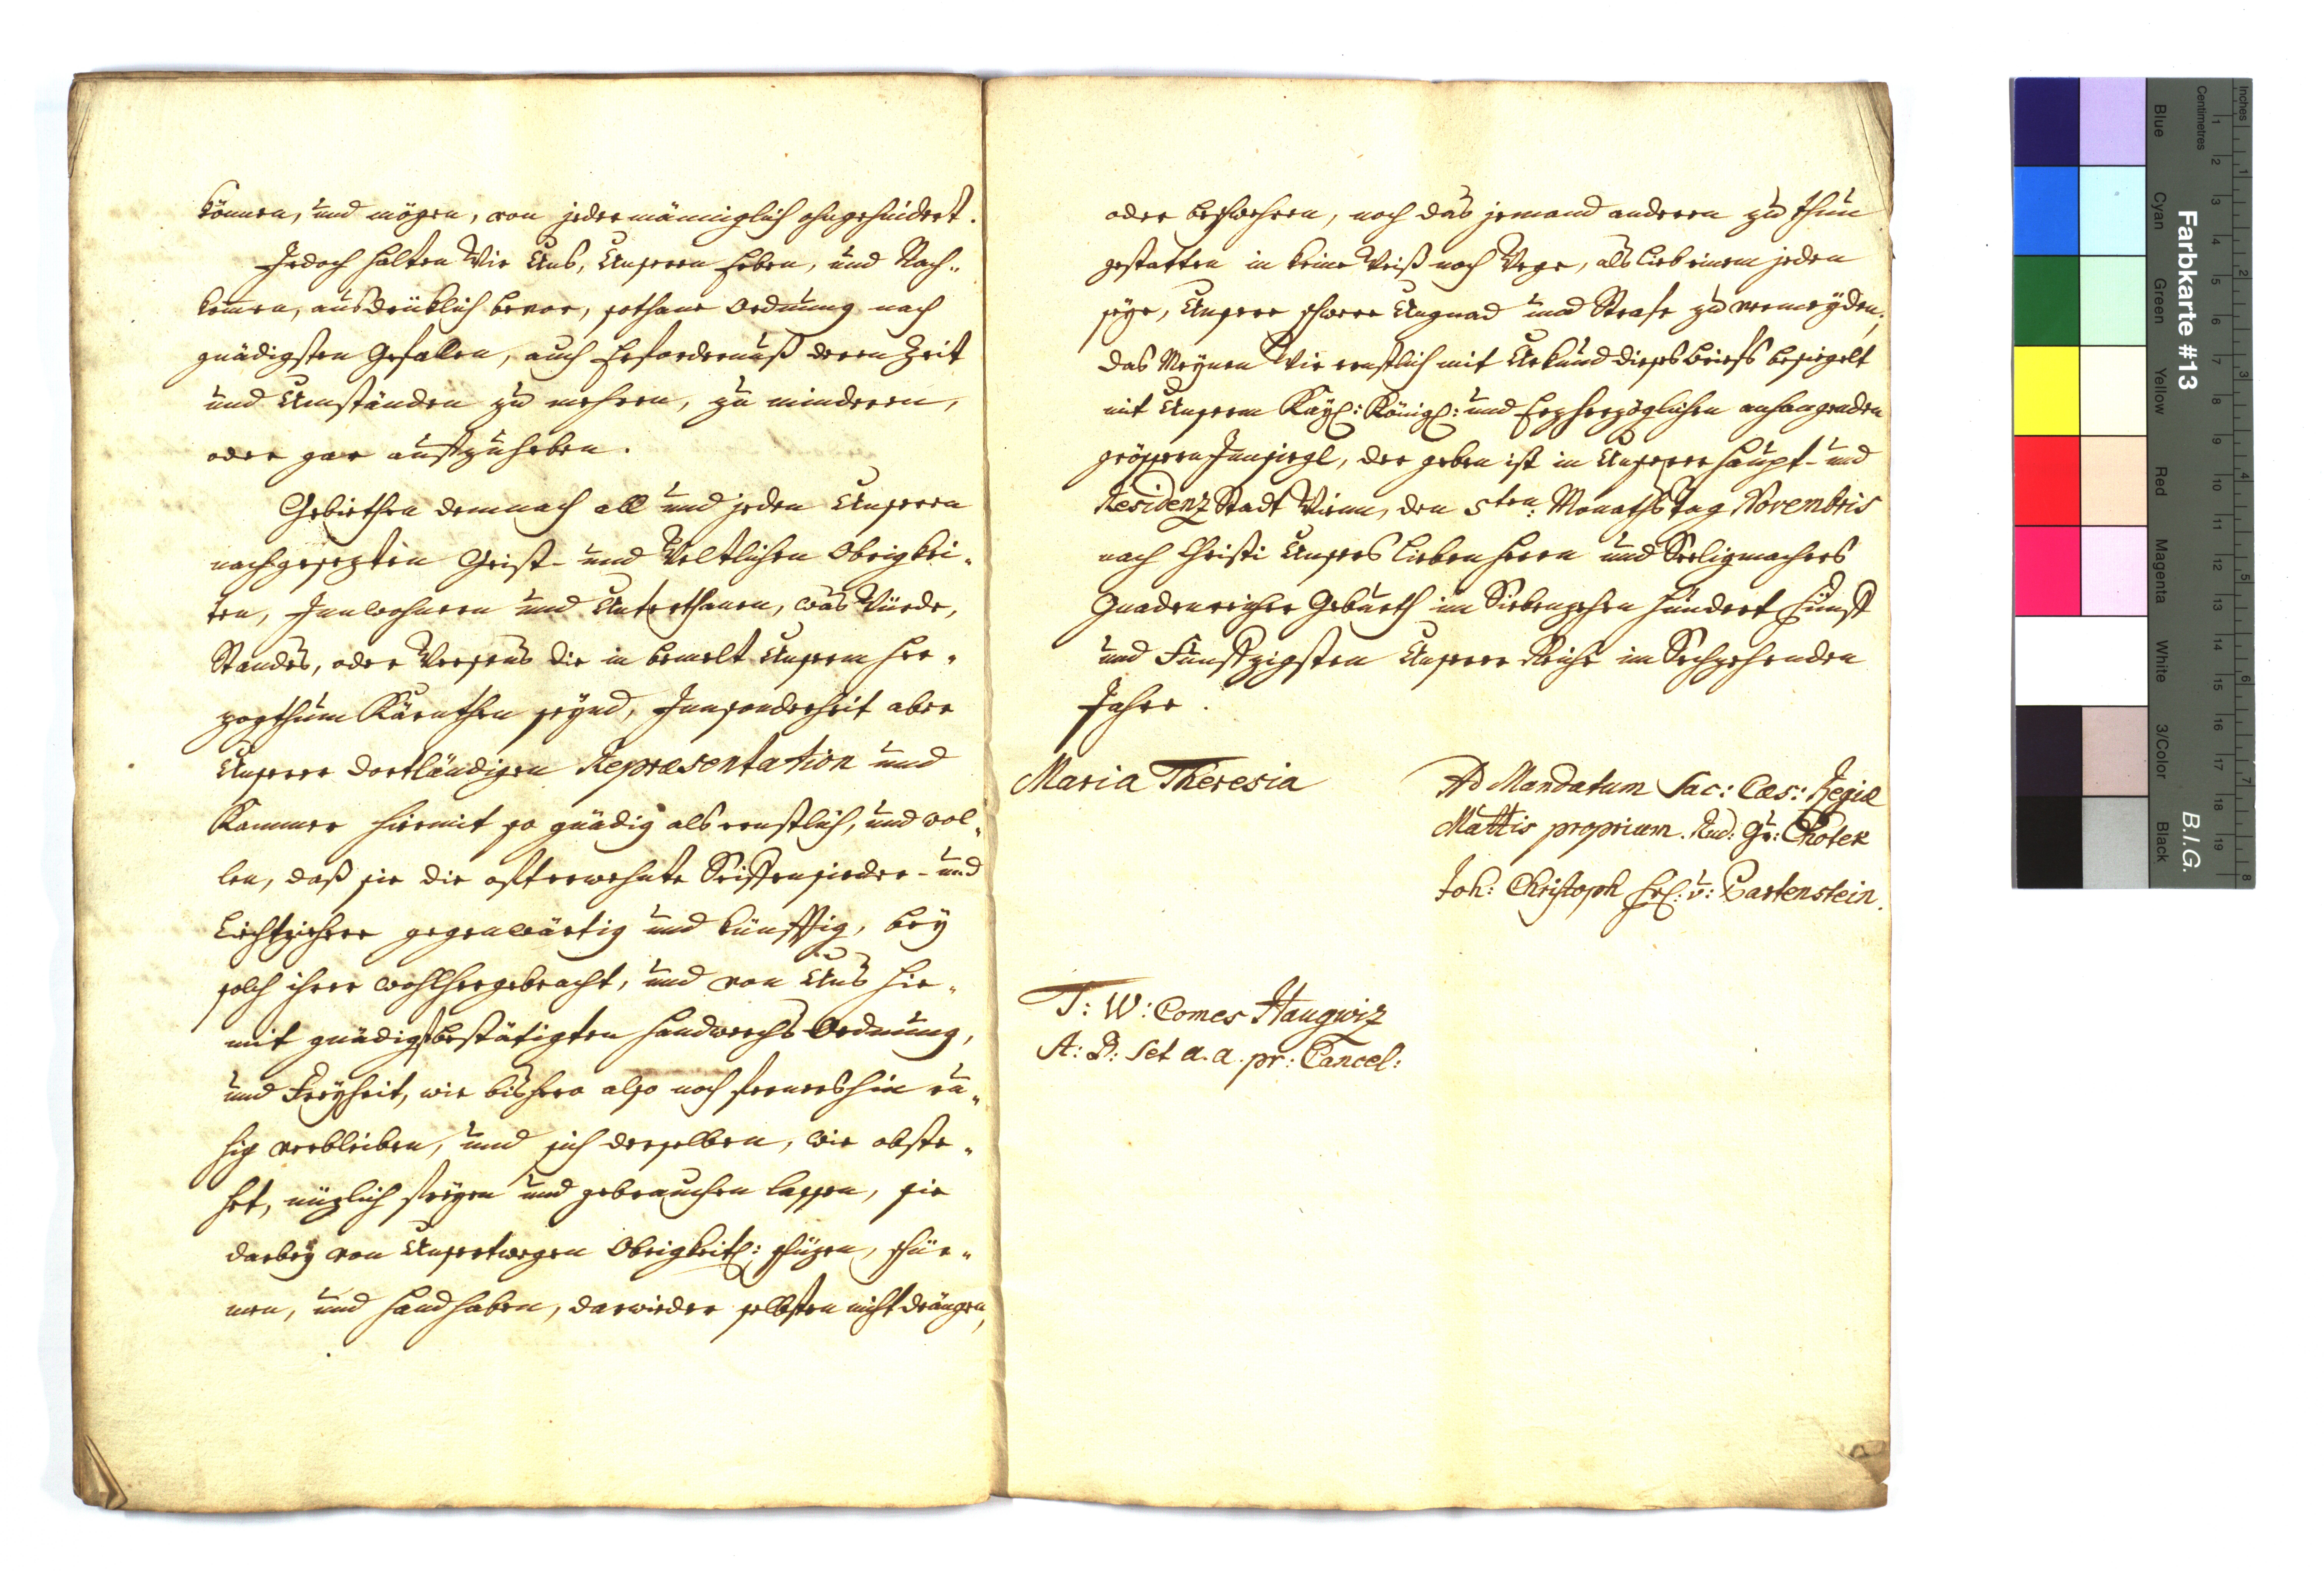 können, und mögen, von jedermänniglich ohngehindert.
Jedoch halten Wir Uns, Unseren Erben, und Nach-
komen, ausdrüklich bevor, sothane Ordnung nach
gnädigsten Gefallen, auch Erfordernuß deren Zeit
und Umständen zu mehren, zu minderen,
oder gar aufzuheben.
Gebiethen demnach all und jeden Unseren
nachgesezten Geist- und Weltlichen Obrigkei-
ten, Innwohnern und Unterthanen, was Würde,
Standes, oder Weesens die in bemelt Unserem Her-
zogthum Kärnthen seynd, Innsonderheit aber
Unserer dortländigen Repræsentation und
Kammer hiermit so gnädig als ernstlich, und wol-
len, daß sie die ofterwehnte Seiffensieder- und
Lichtzieher gegenwärtig und künfftig, bey
solch ihrer wohlhergebracht, und von Uns hie-
mit gnädigst bestätigten Handwerchs Ordnung,
und Freyheit, wie bishero also noch fernershin ru-
hig verbleiben, und sich derselben, wie obste-
het, nüzlich freyen und gebrauchen lassen, sie
darbey von Unsertwegen Obrigkeitl: schüzen, schir-
men, und handhaben, darwieder selbsten nicht drängen,
oder beschwehren, noch das jemand anderen zu thun
gestatten in keine Weiß noch Wege, als lieb einem jeden
seye, Unsere schwere Ungnad und Strafe zu vermeyden;
das Meynen Wir ernstlich mit Urkund dieses Briefs besiegelt
mit Unserem Kayl: Königl: und Erzherzoglichen anhangenden
grösseren Innsiegl, der geben ist in Unserer Haupt- und
Residenz Stadt Wienn, den 5ten: Monaths Tag Novembris
nach Christi Unsers lieben Herrn und Seeligmachers
Gnadenreicher Geburth im Siebenzehen hundert Fünff
und Funffzigsten Unserer Reiche im Sechzehenden
Jahre.
Maria Theresia
Ad Mandatum Sac: Cæs: Regiæ
Mattis proprium. Rud: Gr: Chotek
Joh: Christoph Frh: v: Bartenstein.
F: W: Comes Haugwiz
A: B: Set a. a. pr: Cancel:
Farbkarte #13
B.I.G.
Inches
Centimetres
1 2 3 4 5 6 7 8
1 2 3 4 5 6 7 8 9 10 11 12 13 14 15 16 17 18 19
Blue
Cyan
Green
Yellow
Red
Magenta
White
3/Color
Black